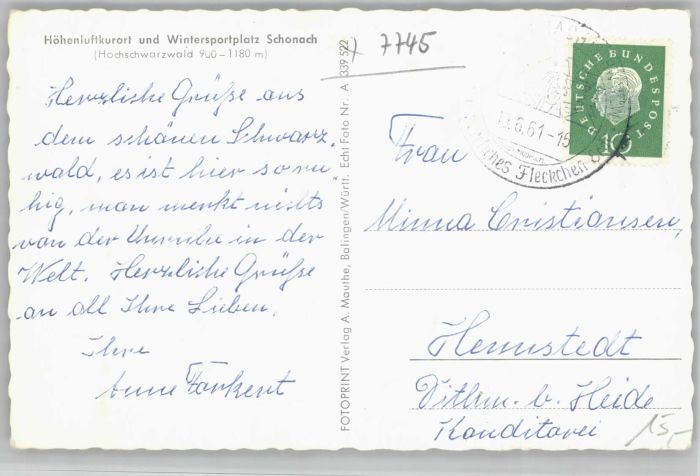 Höhenluftkurort und Wintersportplatz Schonach
(Hochschwarzwald 900–1180 m)
7745
Herzliche Grüße aus
dem schönen Schwarz-
wald, es ist hier so ru-
hig, man merkt nichts
von der Unruhe in der
Welt. Herzliche Grüße
an all Ihre Lieben.
Ihre
Anne
FOTOPRINT Verlag A. Mauthe, Balingen/Württ. Echt Foto Nr. A 339 522
DEUTSCHE BUNDESPOST
10
.6.61-15
Fleckchen
Frau
Minna Cristiansen,
Hennstedt
Dithm. b. Heide
Konditorei
15,-